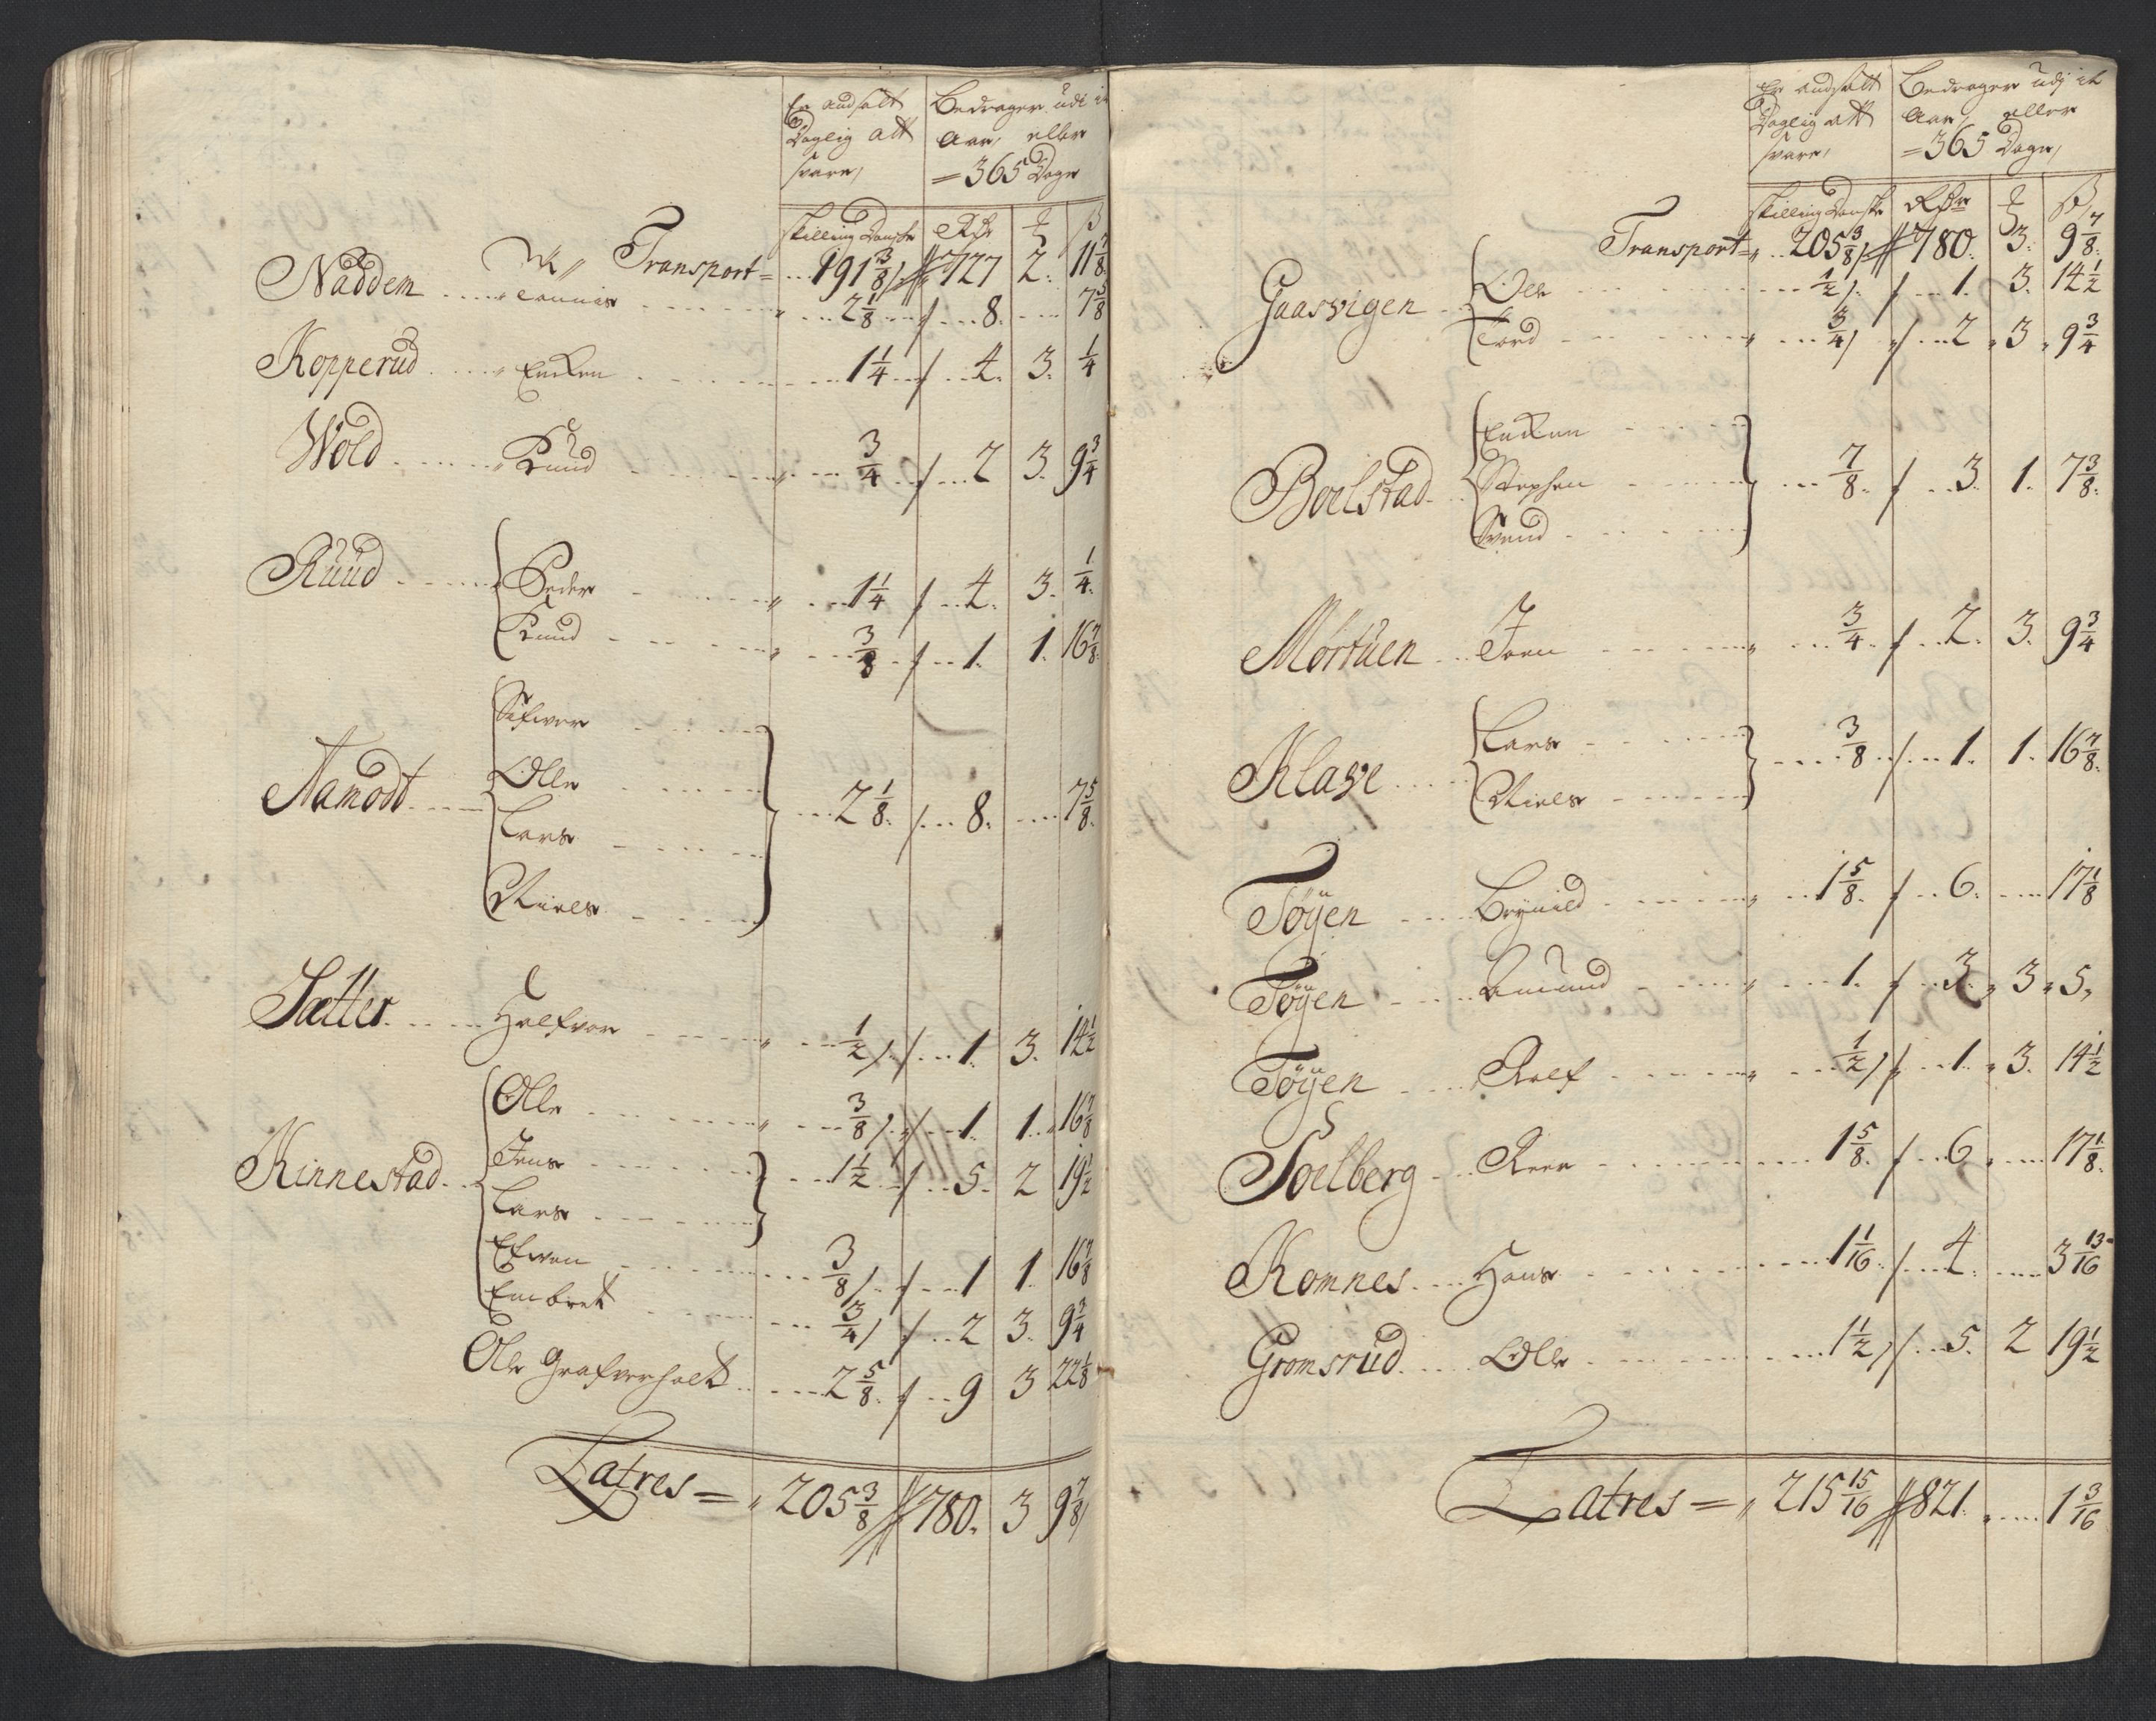 Er andsatt Daglig att svare,
Bedrager udi it Aar, eller = 365 Dage
Skilling Danske Rdr ß
Transport = 191 3/8 727 2. 11 7/8
Naddem 2 1/8 8. 7 5/8
Kopperud 1 1/4 4. 3. 1/4
Wold Knud 3/4 2 3. 9 3/4
Ruud Peder 1 1/4 4. 3. 1/4
Knud 3/8 1. 1. 16 7/8
Aamodt
Olle
Lars 2 1/8. 8. 7 5/8
Niels
Sætter Halfvor 1/2 1. 3. 14 1/2
Olle 3/8 1 1. 16 7/8
Kinnestad Jens 1 1/2 5. 2 19 1/2
Lars
Efven 3/8 1 1. 16 7/8
Embret 3/4 2 3. 9 3/4
Ole Grafverholt 2 5/8. 9 3 22 1/8
Latres = 205 3/8 780. 3 9 7/8
Er andsatt Daglig att svare,
Bedrager udj it Aar, eller = 365 Dage,
Skilling Danske Rdr ß
Transport = 205 3/8 780. 3. 9 7/8
Gaasvigen Ole 1/2 1. 3. 14 1/2
Tord 3/4 2 3 9 3/4
Boelstad
Stephen 7/8. 3. 1. 7 3/8.
Svend
Mortuen Joen 3/4. 2. 3. 9 3/4
Klave Lars 3/8 1. 1. 16 7/8.
Niels
Töyen Brynild 1 5/8. 6. 17 1/8
Töyen Amund 1. 3. 3 5,
Töyen Rolf 1/2 1. 3. 14 1/2
Soelberg 1 5/8. 6 17 1/8.
Komnes Hans 1 1/16. 4. 3 13/16
Gromsrud Olle 1 1/2 5. 2 19 1/2
Latres = 215 15/16 821. 1 3/16